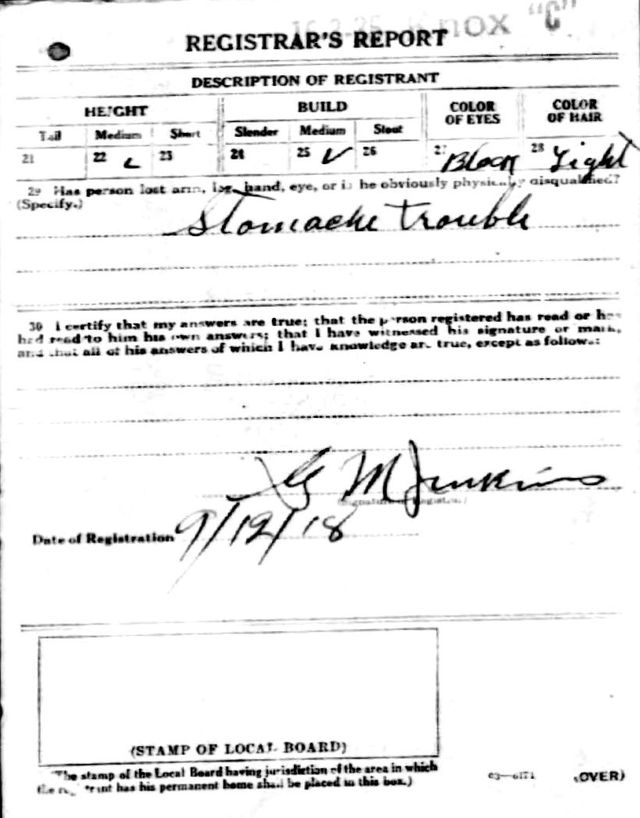 Knox "C"
REGISTRAR'S REPORT
DESCRIPTION OF REGISTRANT
HEIGHT BUILD COLOR OF EYES COLOR OF HAIR
Tall Medium Short Slender Medium Stout
21 22 ✓ 23 24 25 ✓ 26 27 Black 28 Light
29 Has person lost arm, leg, hand, eye, or is he obviously physically disqualified?
(Specify.)
Stomache trouble
30 I certify that my answers are true; that the person registered has read or has
had read to him his own answers; that I have witnessed his signature or mark,
and that all of his answers of which I have knowledge are true, except as follows:
G M Jenkins
(Signature of Registrar)
Date of Registration 9/12/18
(STAMP OF LOCAL BOARD)
(The stamp of the Local Board having jurisdiction of the area in which
the registrant has his permanent home shall be placed in this box.)
03—6171 (OVER)